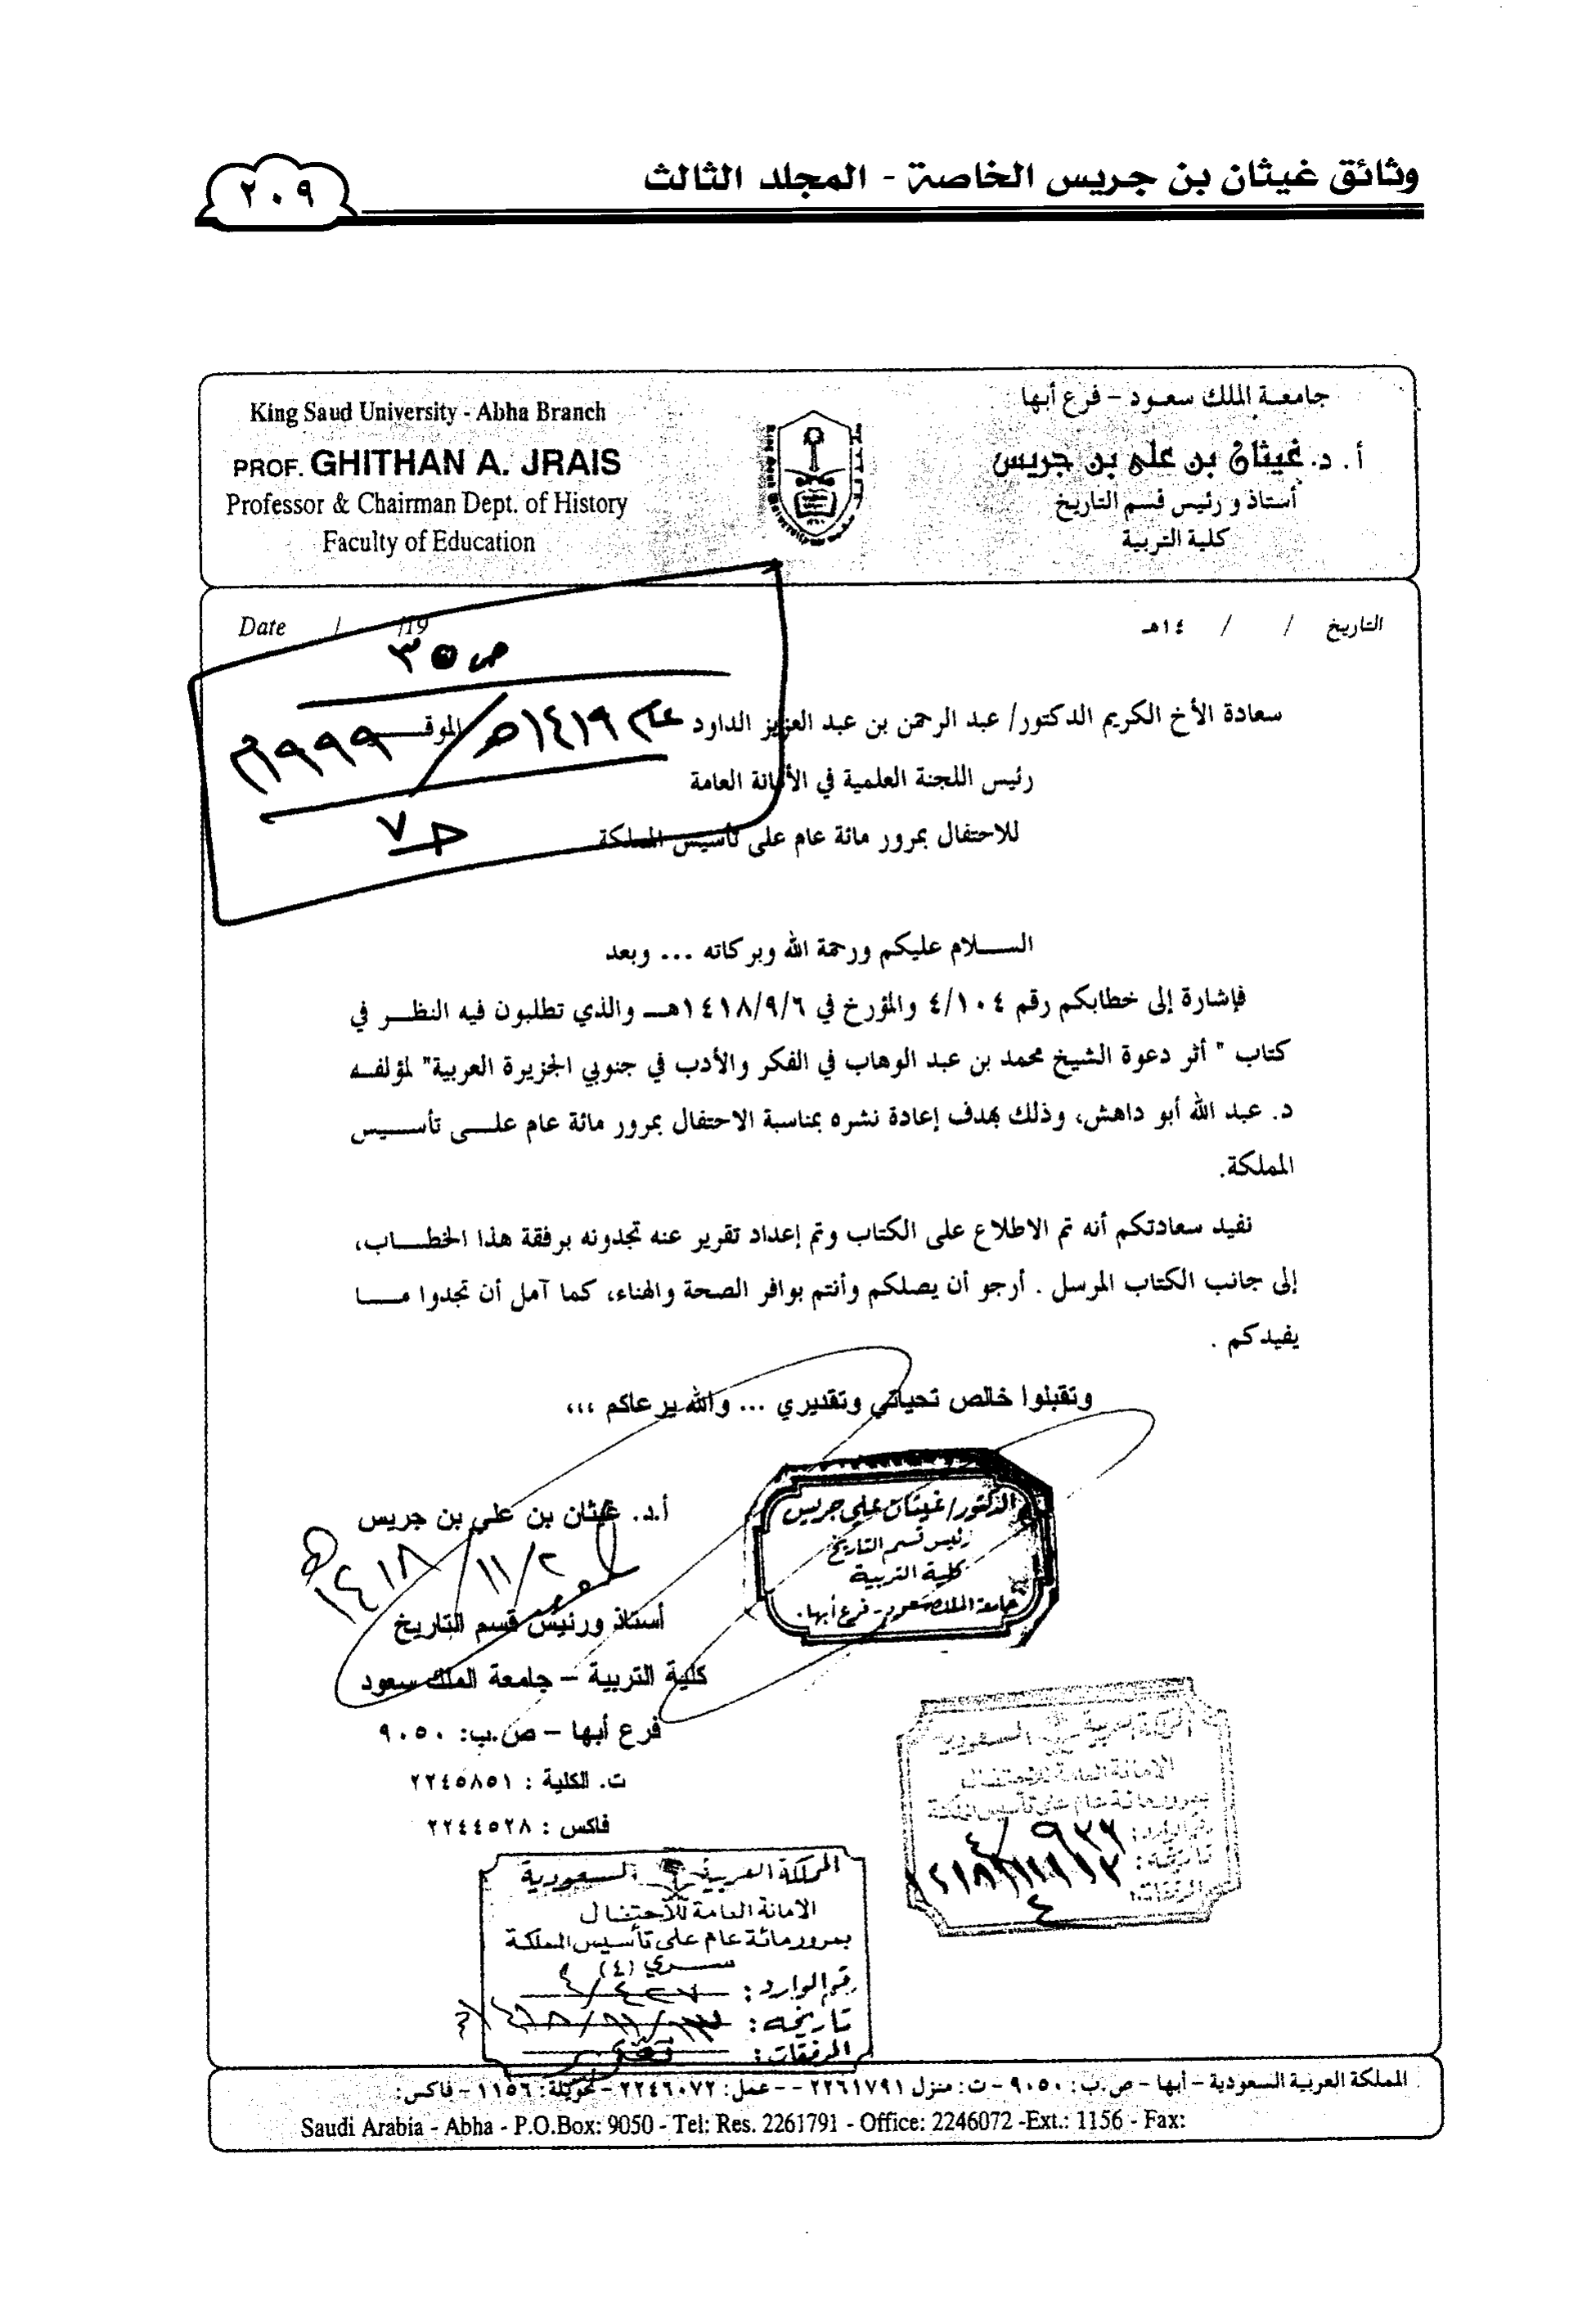 وثائق غيثان بن جريس الخاصة - المجلد الثالث
٢٠٩
جامعة الملك سعود - فرع أبها
أ. د. غيثان بن علي بن جريس
أستاذ و رئيس قسم التاريخ
كلية التربية
King Saud University - Abha Branch
PROF. GHITHAN A. JRAIS
Professor & Chairman Dept. of History
Faculty of Education
التاريخ / / ١٤هـ
Date / /19
ص ٣٥
عام ١٤١٩هـ / ١٩٩٩م
ج٧
سعادة الأخ الكريم الدكتور/ عبد الرحمن بن عبد العزيز الداود الموقـــر
رئيس اللجنة العلمية في الأمانة العامة
للاحتفال بمرور مائة عام على تأسيس المملكة
الســلام عليكم ورحمة الله وبركاته ... وبعد
فإشارة إلى خطابكم رقم ٤/١٠٤ والمؤرخ في ١٤١٨/٩/٦هــ والذي تطلبون فيه النظــر في
كتاب " أثر دعوة الشيخ محمد بن عبد الوهاب في الفكر والأدب في جنوبي الجزيرة العربية" لمؤلفــه
د. عبد الله أبو داهش، وذلك بهدف إعادة نشره بمناسبة الاحتفال بمرور مائة عام علــى تأســيس
المملكة.
نفيد سعادتكم أنه تم الاطلاع على الكتاب وتم إعداد تقرير عنه تجدونه برفقة هذا الخطــاب،
إلى جانب الكتاب المرسل . أرجو أن يصلكم وأنتم بوافر الصحة والهناء، كما آمل أن تجدوا مــا
يفيدكم .
وتقبلوا خالص تحياتي وتقديري ... والله يرعاكم ،،،
أ.د. غيثان بن علي بن جريس
١٤١٨/١١/٢هـ
أستاذ ورئيس قسم التاريخ
كلية التربية – جامعة الملك سعود
فرع أبها – ص.ب: ٩٠٥٠
ت. الكلية : ٢٢٤٥٨٥١
فاكس : ٢٢٤٤٥٢٨
الدكتور/ غيثان علي جريس
رئيس قسم التاريخ
كلية التربية
جامعة الملك سعود - فرع أبها.
المملكة العربية السعودية
الامانة العامة للاحتفال
بمرور مائة عام على تأسيس المملكة
رقم الوارد:
تاريخه:
المرفقات: ٤
المملكة العربية السعودية
الامانة العامة للاحتفال
بمرور مائة عام على تأسيس المملكة
ســري (٤)
رقم الوارد:
تاريخه:
المرفقات:
المملكة العربية السعودية - أبها - ص.ب: ٩٠٥٠ - ت: منزل ٢٢٦١٧٩١ - - عمل: ٢٢٤٦٠٧٢ - تحويلة: ١١٥٦ - فاكس:
Saudi Arabia - Abha - P.O.Box: 9050 - Tel: Res. 2261791 - Office: 2246072 -Ext.: 1156 - Fax: